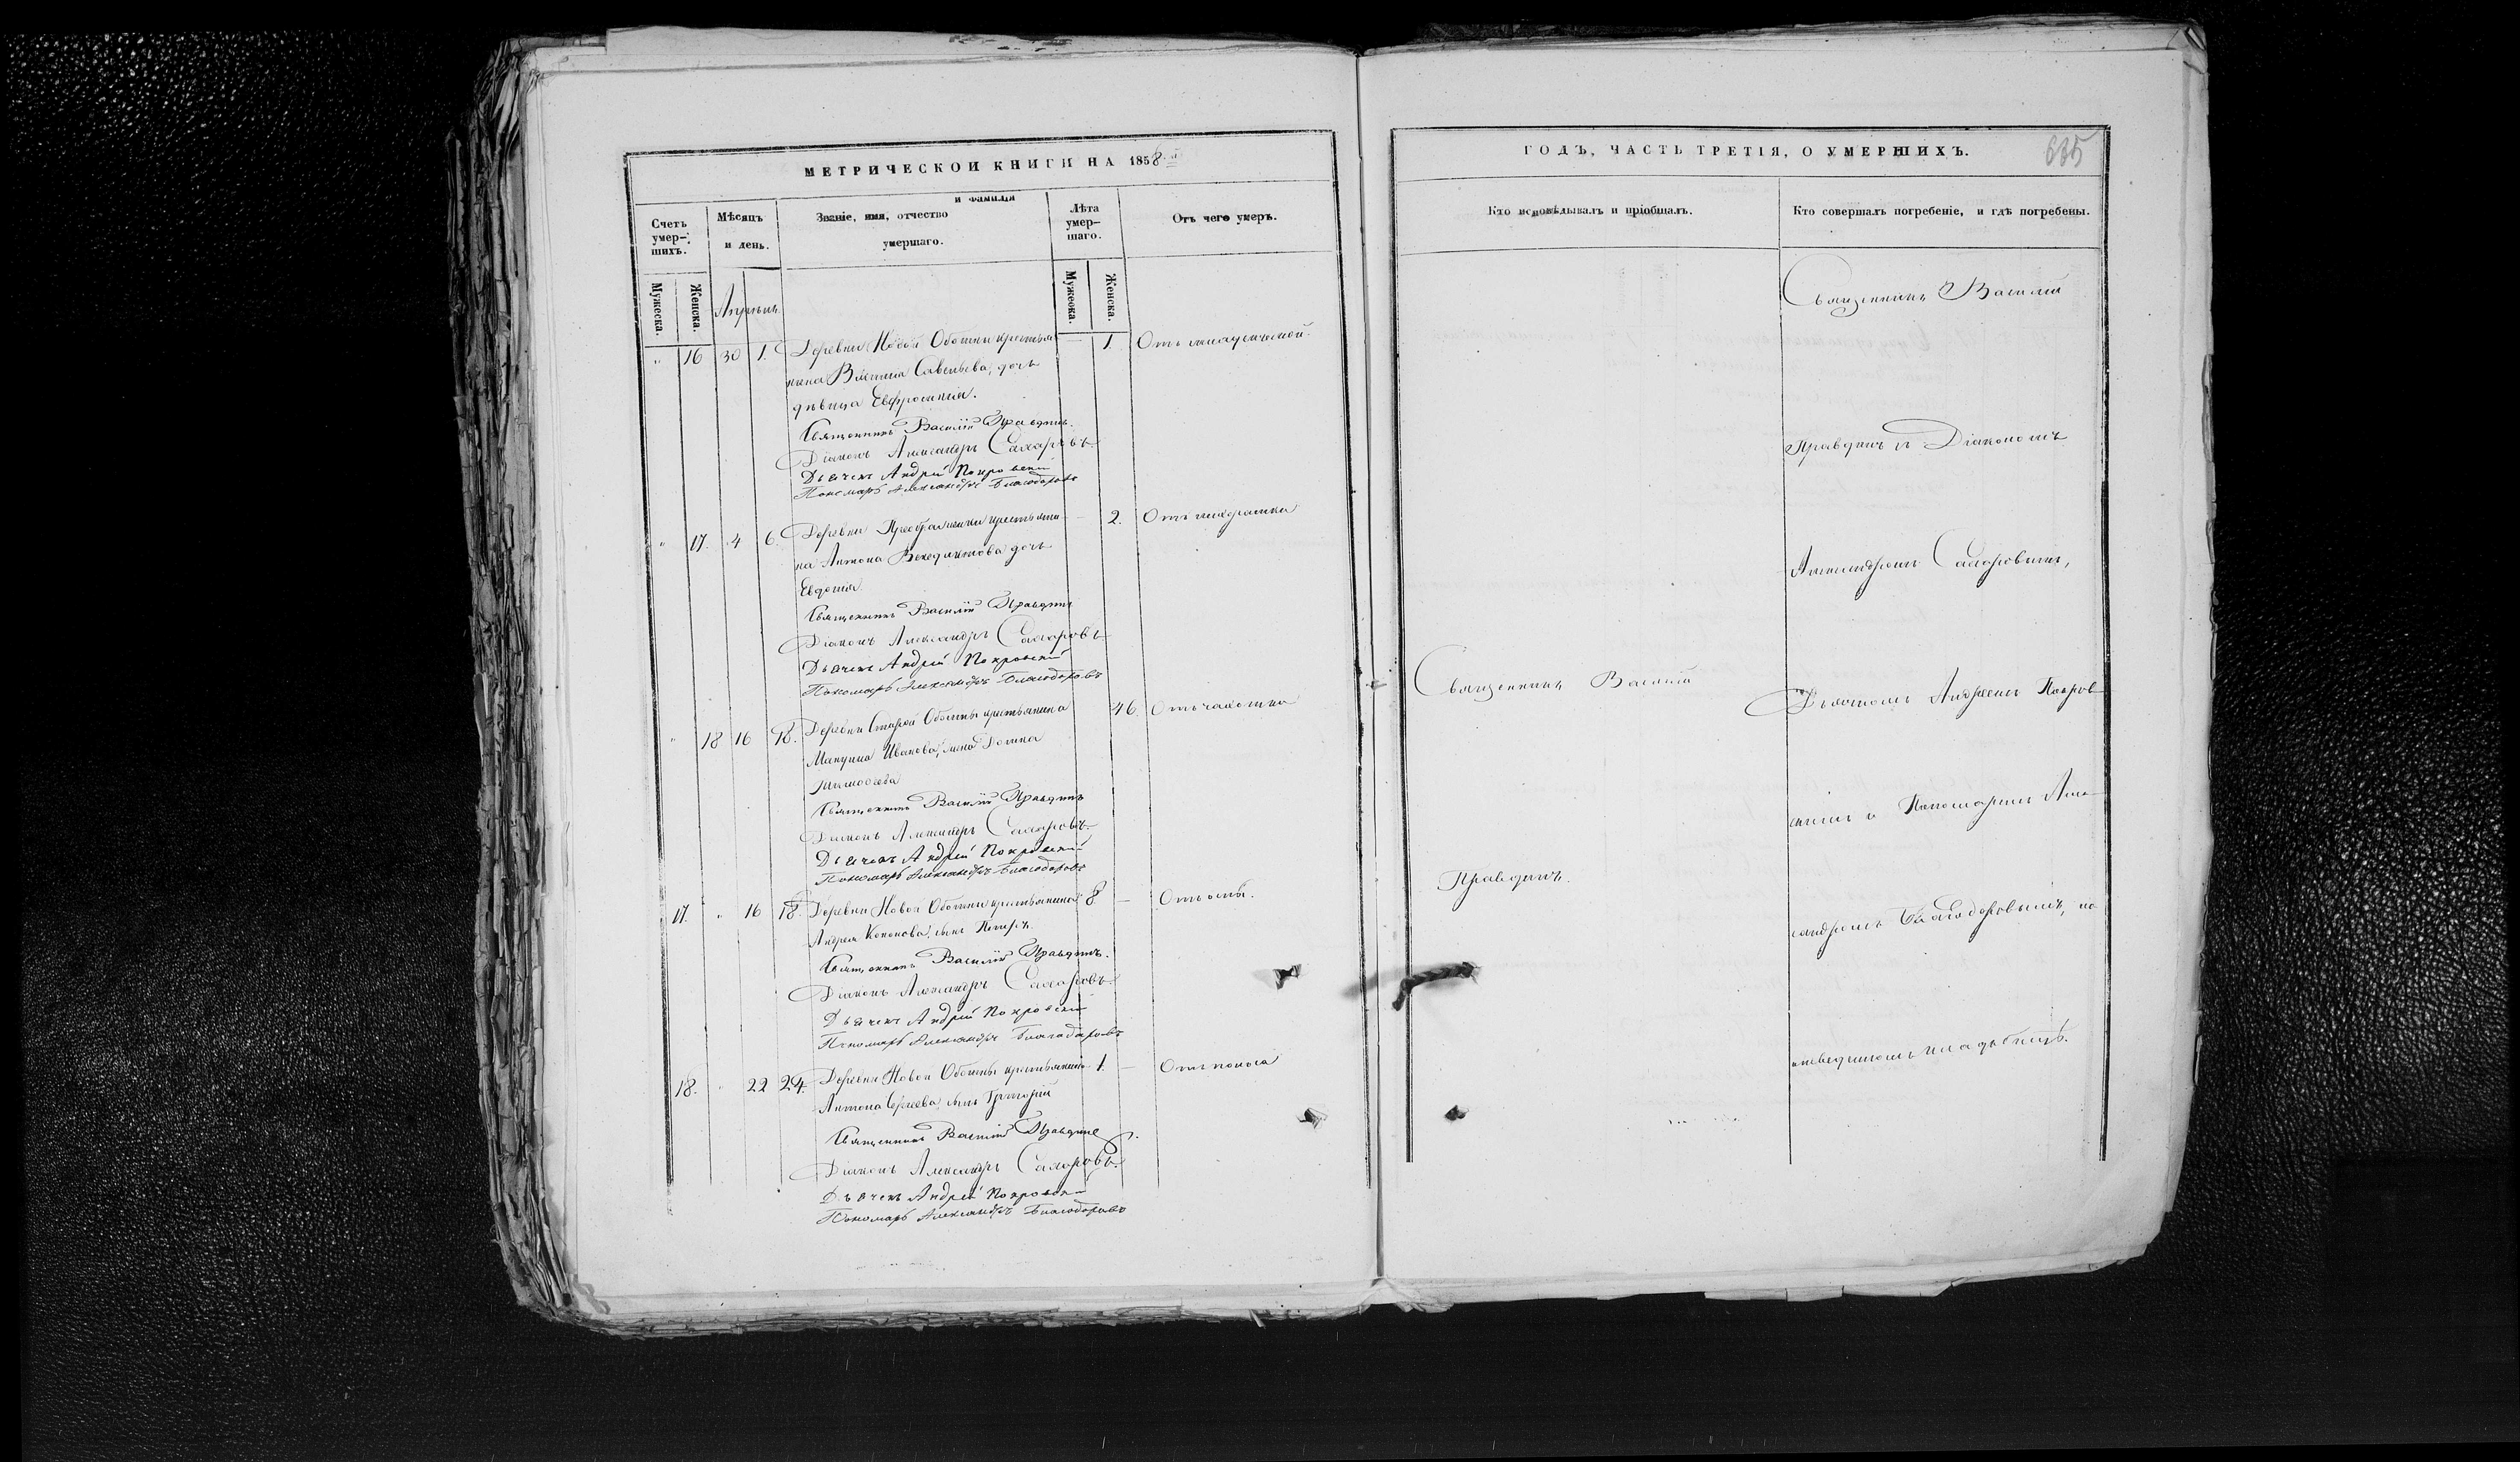 МЕТРИЧЕСКОЙ КНИГИ НА 1858й
Счетъ умер-шихъ.
Мѣсяцъ и день.
Званіе, имя, отчество и фамилія умершаго.
Лѣта умер-шаго.
Отъ чего умеръ.
Мужеска.
Женска.
Мужеска.
Женска.
Апрѣль
" 16 30 1. Деревни Новой Обошны крестья 1. Отъ младенческой
нина Василія Савельева, дочь
дѣвица Евфросинія.
Священникъ Василій Правдинъ.
Діаконъ Александръ Сахаровъ
Дьячекъ Андрей Покровскій
Пономарь Александръ Благодаровъ
" 17. 4 6. Деревни крестьяни 2. Отъ лихорадки
на Антона Венедиктова дочь
Евдокія
Священникъ Василій Правдинъ
Діаконъ Александръ Сахаровъ
Дьячекъ Андрей Покровскій
Пономарь Александръ Благодаровъ
" 18 16 18. Деревни Старой Обошны крестьянина 46. Отъ чахотки
Иванова, жена
Тимофеева
Священникъ Василій Правдинъ
Діаконъ Александръ Сахаровъ
Дьячекъ Андрей Покровскій
Пономарь Александръ Благодаровъ
17. " 16 18. Деревни Новой Обошны крестьянина 8 — Отъ оспы.
Андрея Кононова, сынъ Петръ
Священникъ Василій Правдинъ.
Діаконъ Александръ Сахаровъ
Дьячекъ Андрей Покровскій
Пономарь Александръ Благодаровъ
18. " 22 24. Деревни Новой Обошны крестьянина 1. — Отъ поноса
Антона Сергеева, сынъ Григорій
Священникъ Василій Правдинъ
Діаконъ Александръ Сахаровъ.
Дьячекъ Андрей Покровскій
Пономарь Александръ Благодаровъ
ГОДЪ, ЧАСТЬ ТРЕТІЯ, О УМЕРШИХЪ.
635
Кто исповѣдывалъ и пріобщалъ.
Кто совершалъ погребеніе, и гдѣ погребены.
Священникъ Василій
Правдинъ.
Священникъ Василій
Правдинъ съ Діакономъ
Александромъ Сахаровымъ,
Дьячкомъ Андреемъ Покров
скимъ и Пономаремъ Алек
сандромъ Благодаровымъ, на
кладбищѣ.